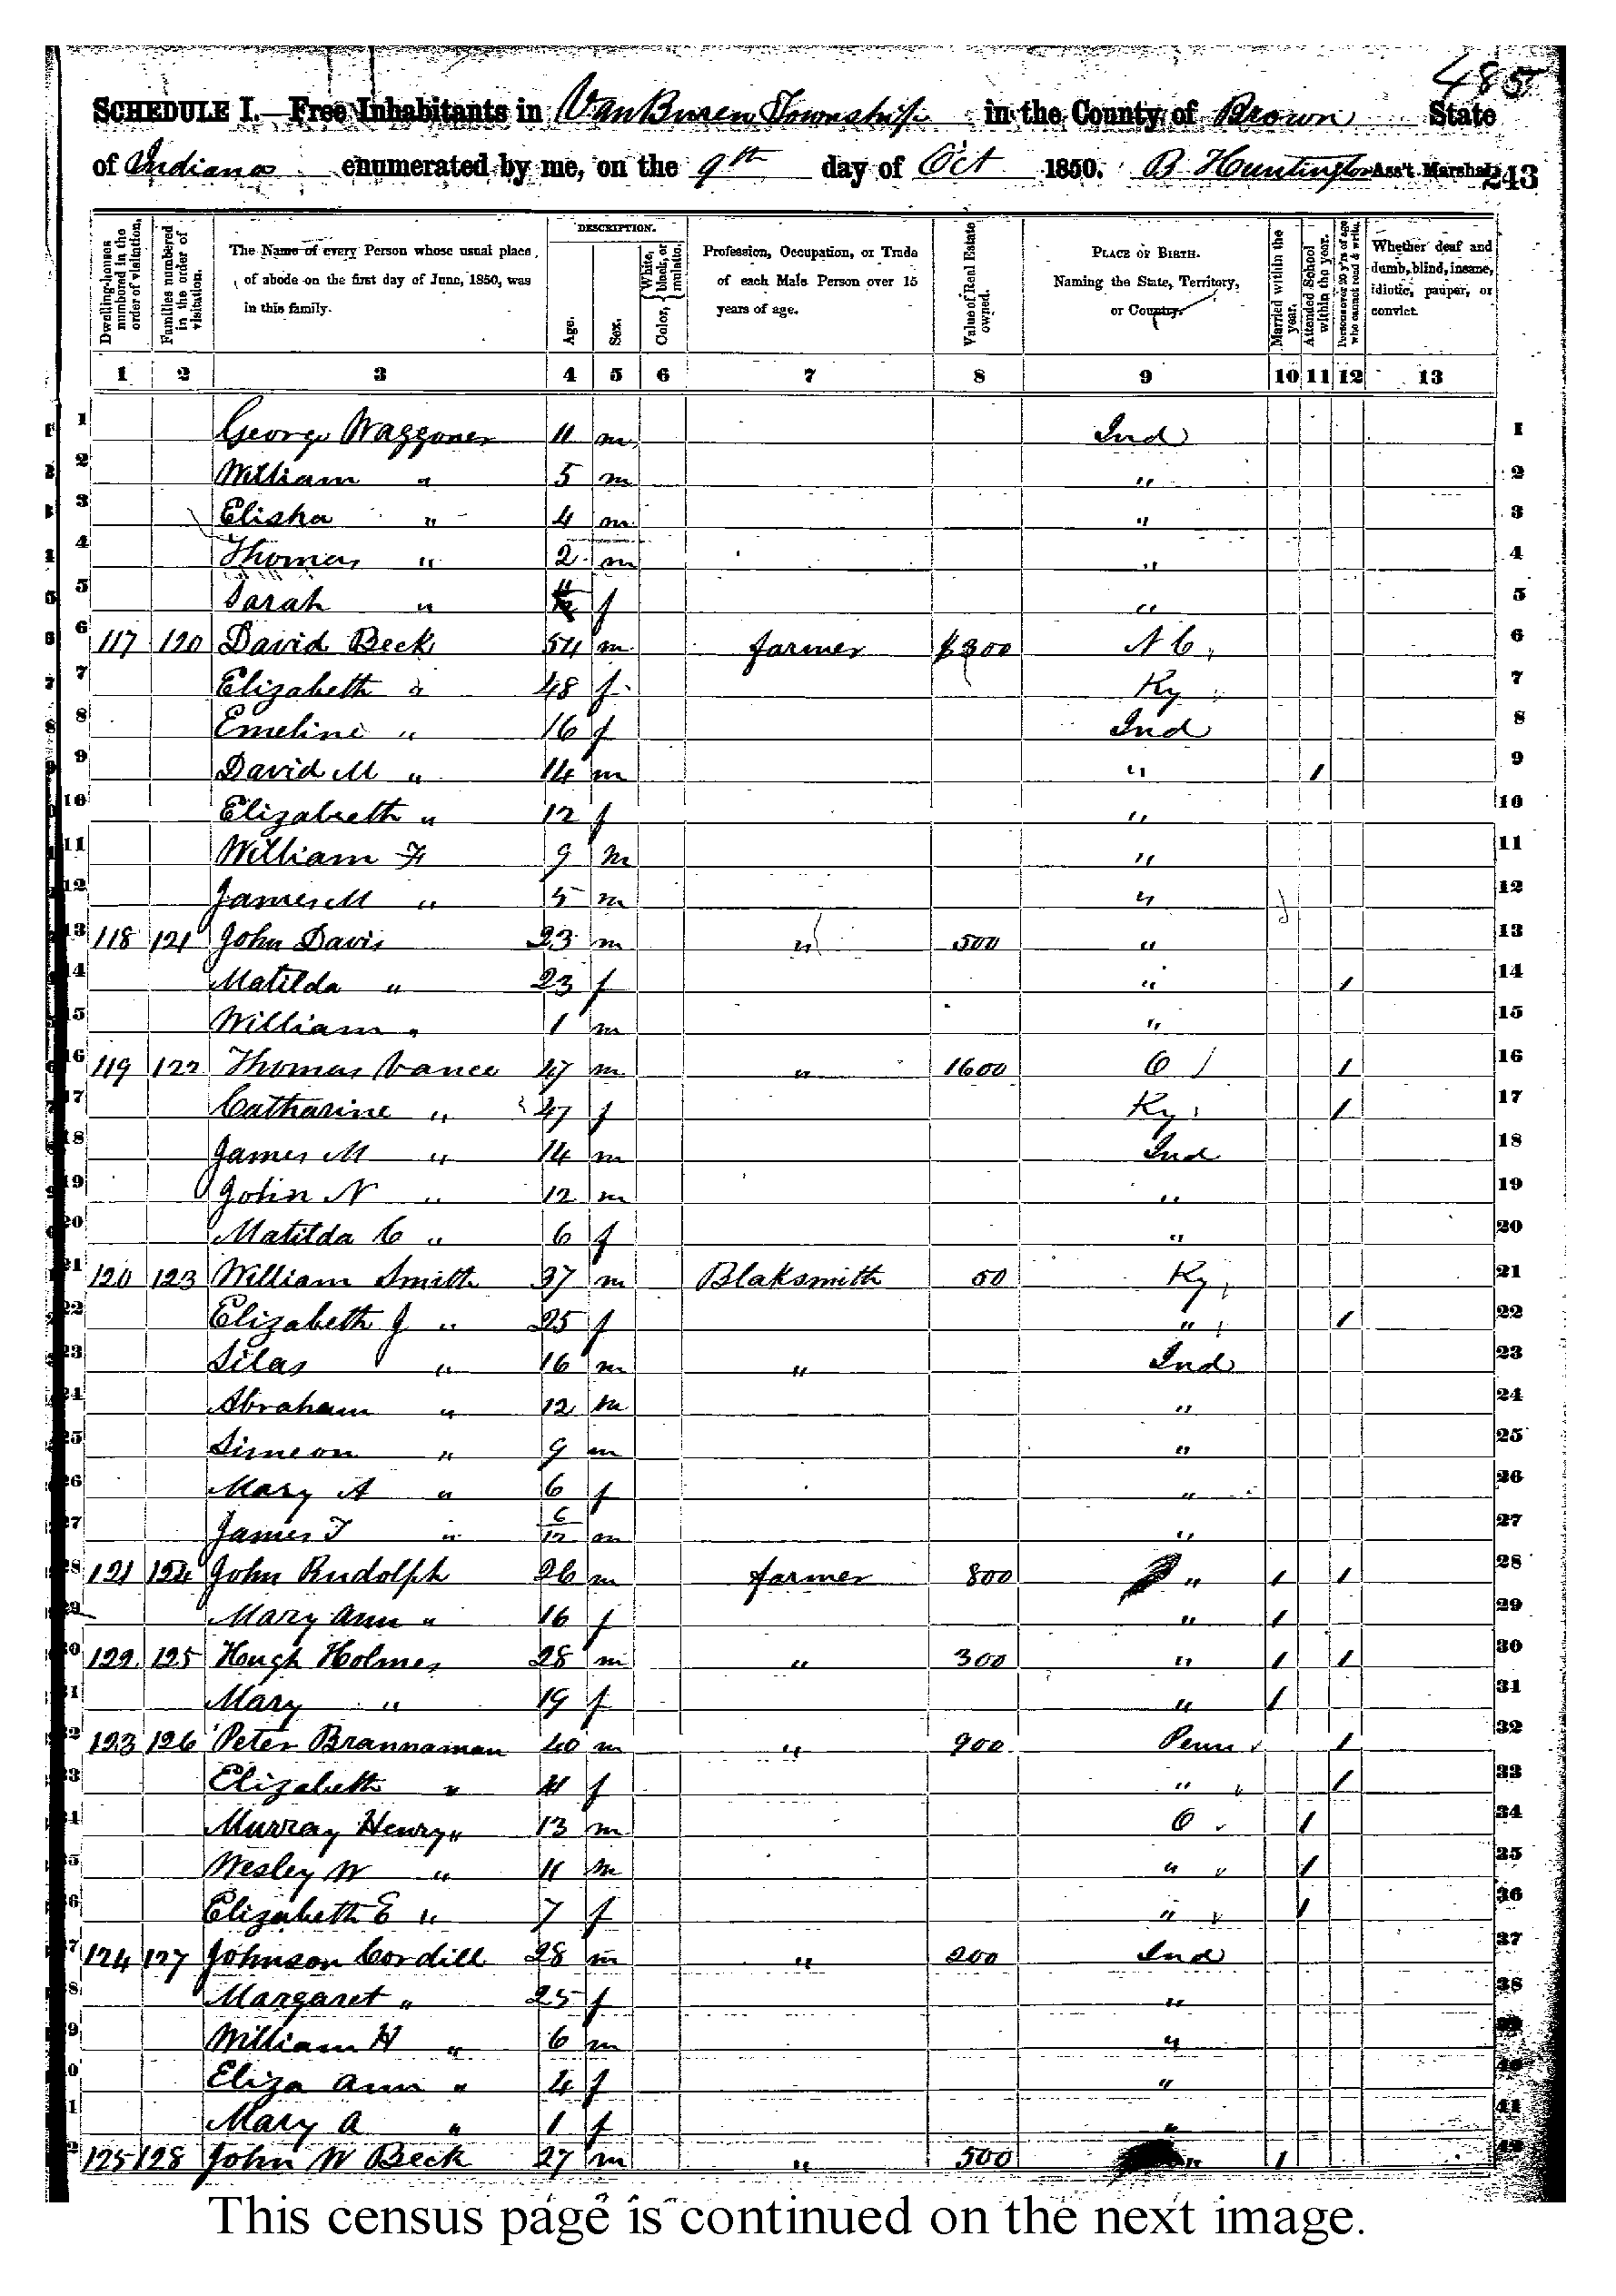 485
SCHEDULE I.—Free Inhabitants in Van Buren Township in the County of Brown State
of Indiana enumerated by me, on the 9th day of Oct 1850. B Huntington Ass't Marshal. 243
Dwelling-houses numbered in the order of visitation. Families numbered in the order of visitation. The Name of every Person whose usual place of abode on the first day of June, 1850, was in this family. DESCRIPTION. Age. Sex. Color, { White, black, or mulatto. Profession, Occupation, or Trade of each Male Person over 15 years of age. Value of Real Estate owned. PLACE OF BIRTH. Naming the State, Territory, or Country. Married within the year. Attended School within the year. Persons over 20 y'rs of age who cannot read & write. Whether deaf and dumb, blind, insane, idiotic, pauper, or convict.
1 2 3 4 5 6 7 8 9 10 11 12 13
1 George Waggoner 11 m Ind 1
2 William " 5 m " 2
3 Elisha " 4 m " 3
4 Thomas " 2 m " 4
5 Sarah " f " 5
6 117 120 David Beck 54 m farmer $300 N C 6
7 Elizabeth " 48 f Ky 7
8 Emeline " 16 f Ind 8
9 David M " 14 m " / 9
10 Elizabeth " 12 f " 10
11 William F 9 m " 11
12 James M " 5 m " 12
13 118 121 John Davis 23 m " 500 " 13
14 Matilda " 23 f " / 14
15 William " 1 m " 15
16 119 122 Thomas Vance 47 m " 1600 O / 16
17 Catharine " 47 f Ky / 17
18 James M " 14 m Ind 18
19 John N " 12 m " 19
20 Matilda C " 6 f " 20
21 120 123 William Smith 37 m Blaksmith 50 Ky 21
22 Elizabeth J " 25 f " / 22
23 Silas " 16 m " Ind 23
24 Abraham " 12 m " 24
25 Simeon " 9 m " 25
26 Mary A " 6 f " 26
27 James T " 6/12 m " 27
28 121 124 John Rudolph 26 m farmer 800 " / / 28
29 Mary Ann " 16 f " / 29
30 122 125 Hough Holmes 28 m " 300 " / / 30
31 Mary " 19 f " / 31
32 123 126 Peter Brannaman 40 m " 900 Penn / 32
33 Elizabeth " 41 f " / 33
34 Murray Henry " 13 m O / 34
35 Wesley W " 11 m " / 35
36 Elizabeth E " 7 f " / 36
37 124 127 Johnson Cordill 28 m " 200 Ind 37
38 Margaret " 25 f " 38
39 William H " 6 m " 39
40 Eliza Ann " 4 f " 40
41 Mary A " 1 f " 41
42 125 128 John W Beck 27 m " 500 " / 42
This census page is continued on the next image.